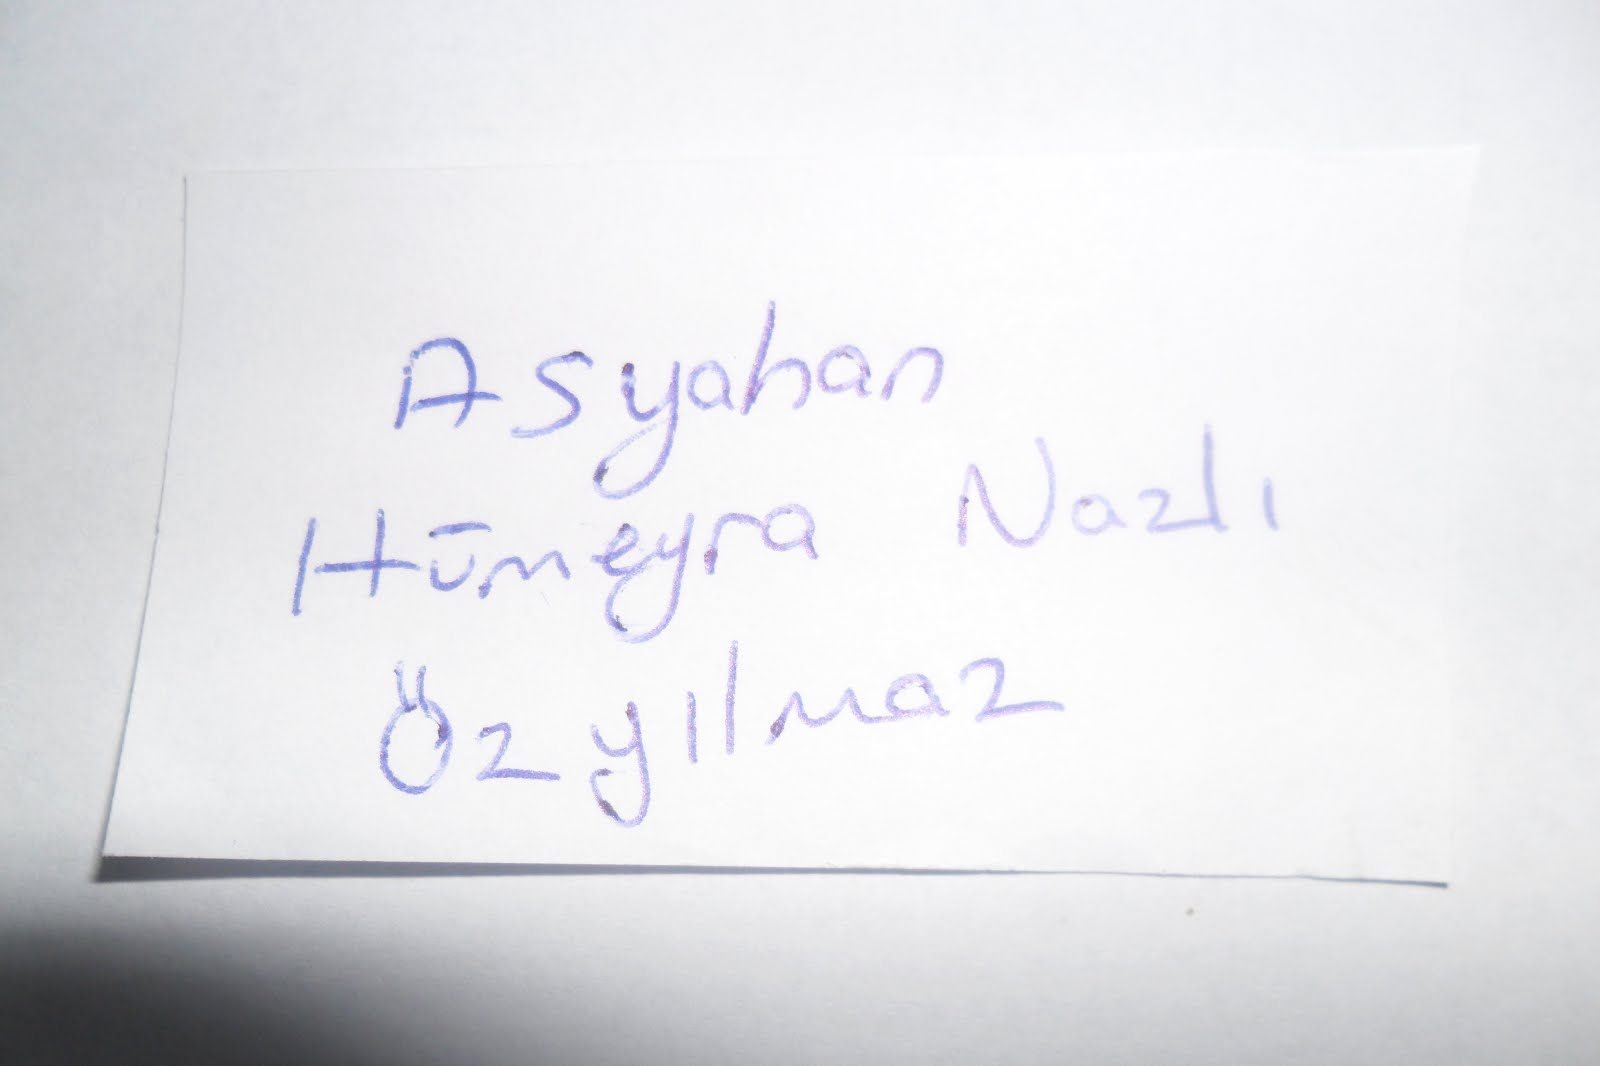 Asyahan
Hümeyra Nazlı
Özyılmaz